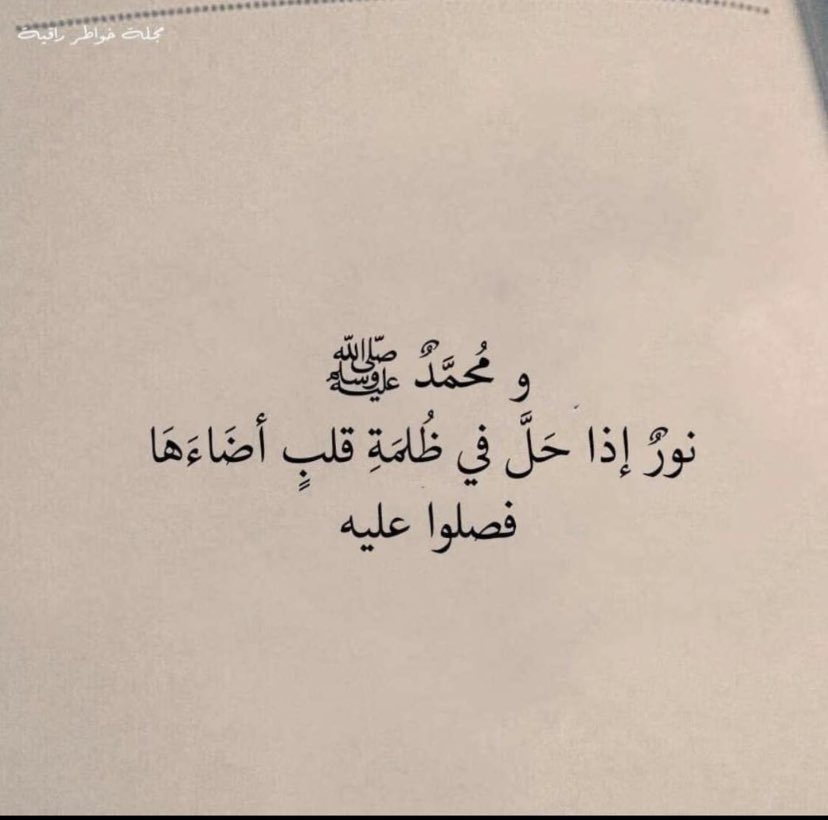 مجلة خواطر راقية
و مُحمَّدٌ ﷺ
نورٌ إذا حَلَّ في ظُلمَةِ قلبٍ أضَاءَهَا
فصلوا عليه